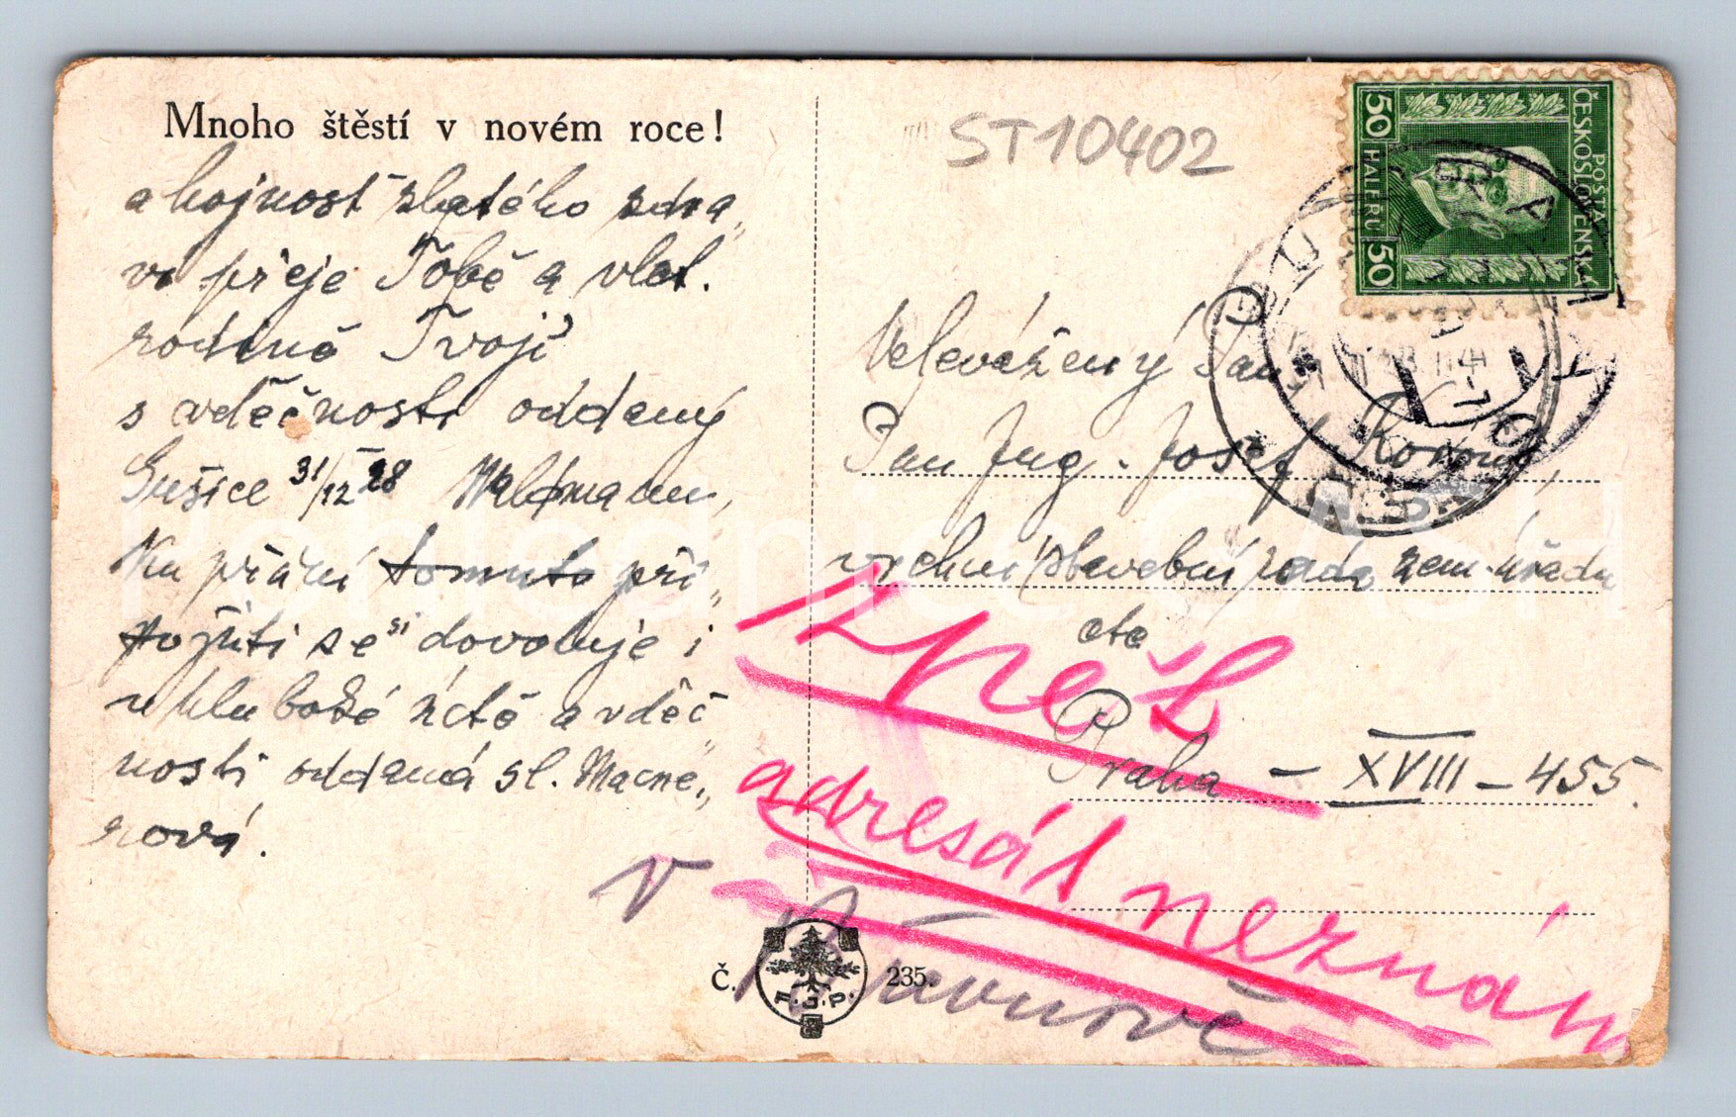 Mnoho štěstí v novém roce!
a hojnost zlatého zdra„
ví přeje Tobě a vlast.
rodině Tvojí
s vděčností oddaný
Sušice 31/12 28 Waldmann,
Ku přání tomuto při„
pojiti se si dovoluje i
v hluboké úctě a vděč„
nosti oddaná sl. Macne„
rová.
ST10402
POŠTA
ČESKOSLOVENSKÁ
50 HALÉŘŮ 50
Velevážený Pan
Pan Ing. Josef
vrchní stavební rada zem. úřadu
etc
Praha – XVIII – 455.
Zpět
adresát neznám
v
Č. F.J.P. 235.